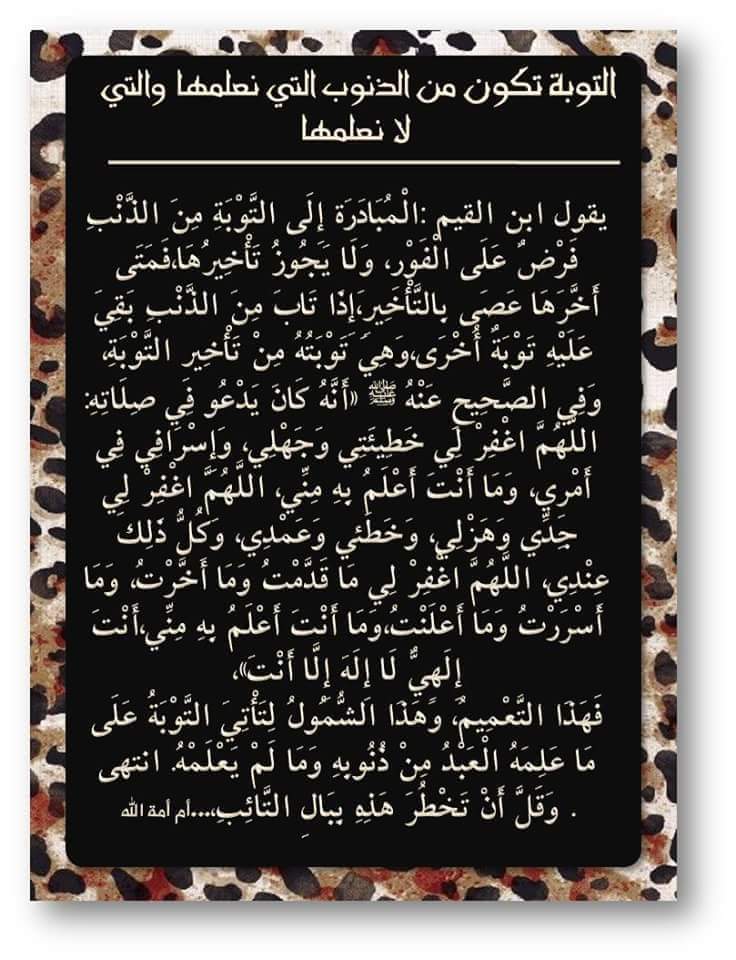 التوبة تكون من الذنوب التي نعلمها والتي
لا نعلمها
يقول ابن القيم :الْمُبَادَرَة إلَى التَّوْبَةِ مِنَ الذَّنْبِ
فَرْضٌ عَلَى الْفَوْرِ، وَلَا يَجُوزُ تَأْخِيرُهَا،فَمَتَى
أَخَّرَهَا عَصَى بِالتَّأْخِيرِ،إذَا تَابَ مِنَ الذَّنْبِ بَقِيَ
عَلَيْهِ تَوْبَةٌ أُخْرَى،وَهِيَ تَوْبَتُهُ مِنْ تَأْخِيرِ التَّوْبَةِ،
وَفِي الصَّحِيحِ عَنْهُ ﷺ «أَنَّهُ كَانَ يَدْعُو فِي صلَاتِهِ:
اللَّهُمَّ اغْفِرْ لِي خَطِيئَتِي وَجَهْلِي، وَإسْرَافِي فِي
أَمْرِي، وَمَا أَنْتَ أَعْلَمُ بِهِ مِنِّي، اللَّهُمَّ اغْفِرْ لِي
جِدِّي وَهَزْلِي، وَخَطَئي وَعَمْدِي، وَكُلُّ ذَلِكَ
عِنْدِي، اللَّهُمَّ اغْفِرْ لِي مَا قَدَّمْتُ وَمَا أَخَّرْتُ، وَمَا
أَسْرَرْتُ وَمَا أَعْلَنْتُ،وَمَا أَنْتَ أَعْلَمُ بِهِ مِنِّي،أَنْتَ
إلَهِيُّ لَا إلَهَ إلَّا أَنْتَ»،
فَهَذَا التَّعْمِيمُ، وَهَذَا الشُّمُولُ لِتَأْتِيَ التَّوْبَةُ عَلَى
مَا عَلِمَهُ الْعَبْدُ مِنْ ذُنُوبِهِ وَمَا لَمْ يَعْلَمْهُ. انتهى
. وَقَلَّ أَنْ تَخْطُرَ هَذِهِ بِبَالِ التَّائِبِ،...أم أمة الله